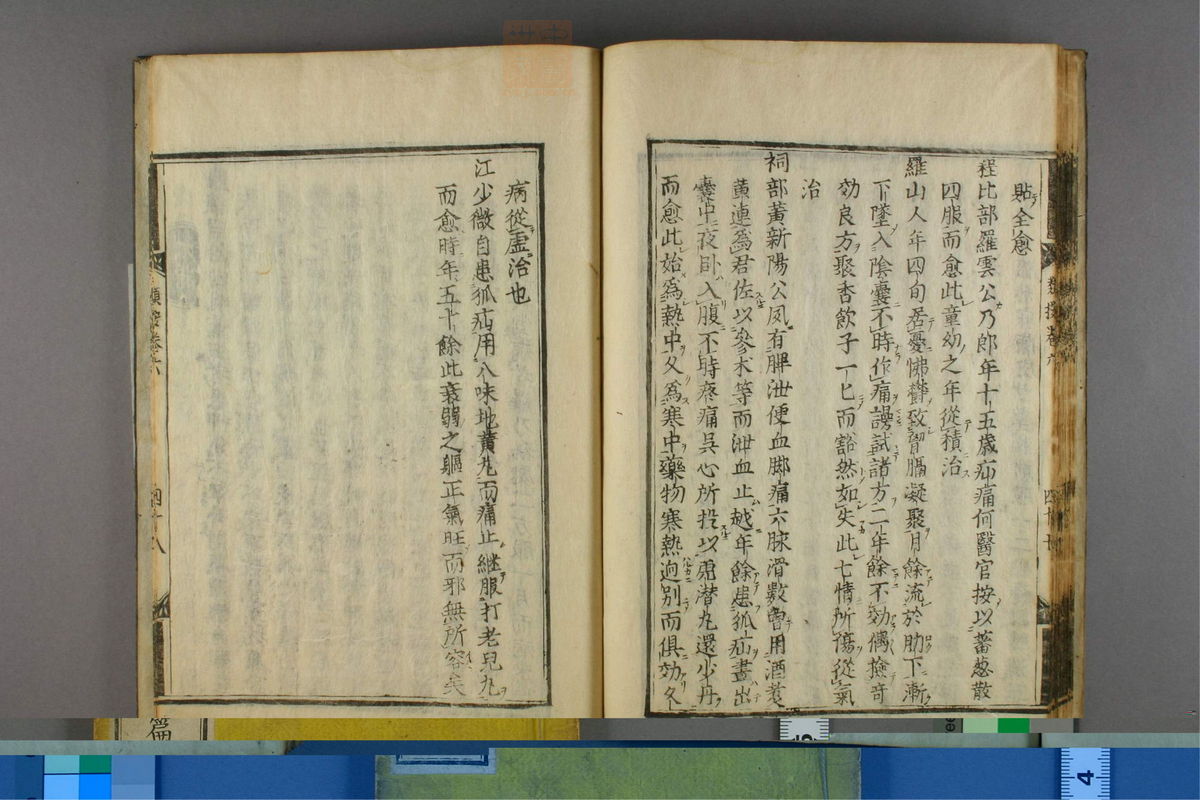 貼全愈
程比部羅雲公乃郎年十五歳疝痛何醫官按以蓄葱散
四服而愈此童幼之年從積治
羅山人年四旬居憂怫鬱致胷膈凝聚月餘流於肋下漸
下墜入陰嚢不時作痛謾試諸方二年餘不効偶撿奇
効良方聚香飲子一匕而豁然如失此七情所傷從氣
治
祠部黃新陽公夙有脾泄便血脚痛六脉滑數曽用酒蒸
黄連爲君佐以參朮等而泄血止越年餘患狐疝晝出
嚢中夜卧入腹不時疼痛呉心所投以虎潜丸還少丹
而愈此始爲熱中久爲寒中藥物寒熱逈別而俱効久
病從虛治也
江少微自患狐疝用八味地黄丸而痛止継服打老兒丸
而愈時年五十餘此衰弱之軀正氣旺而邪無所容矣
四十八